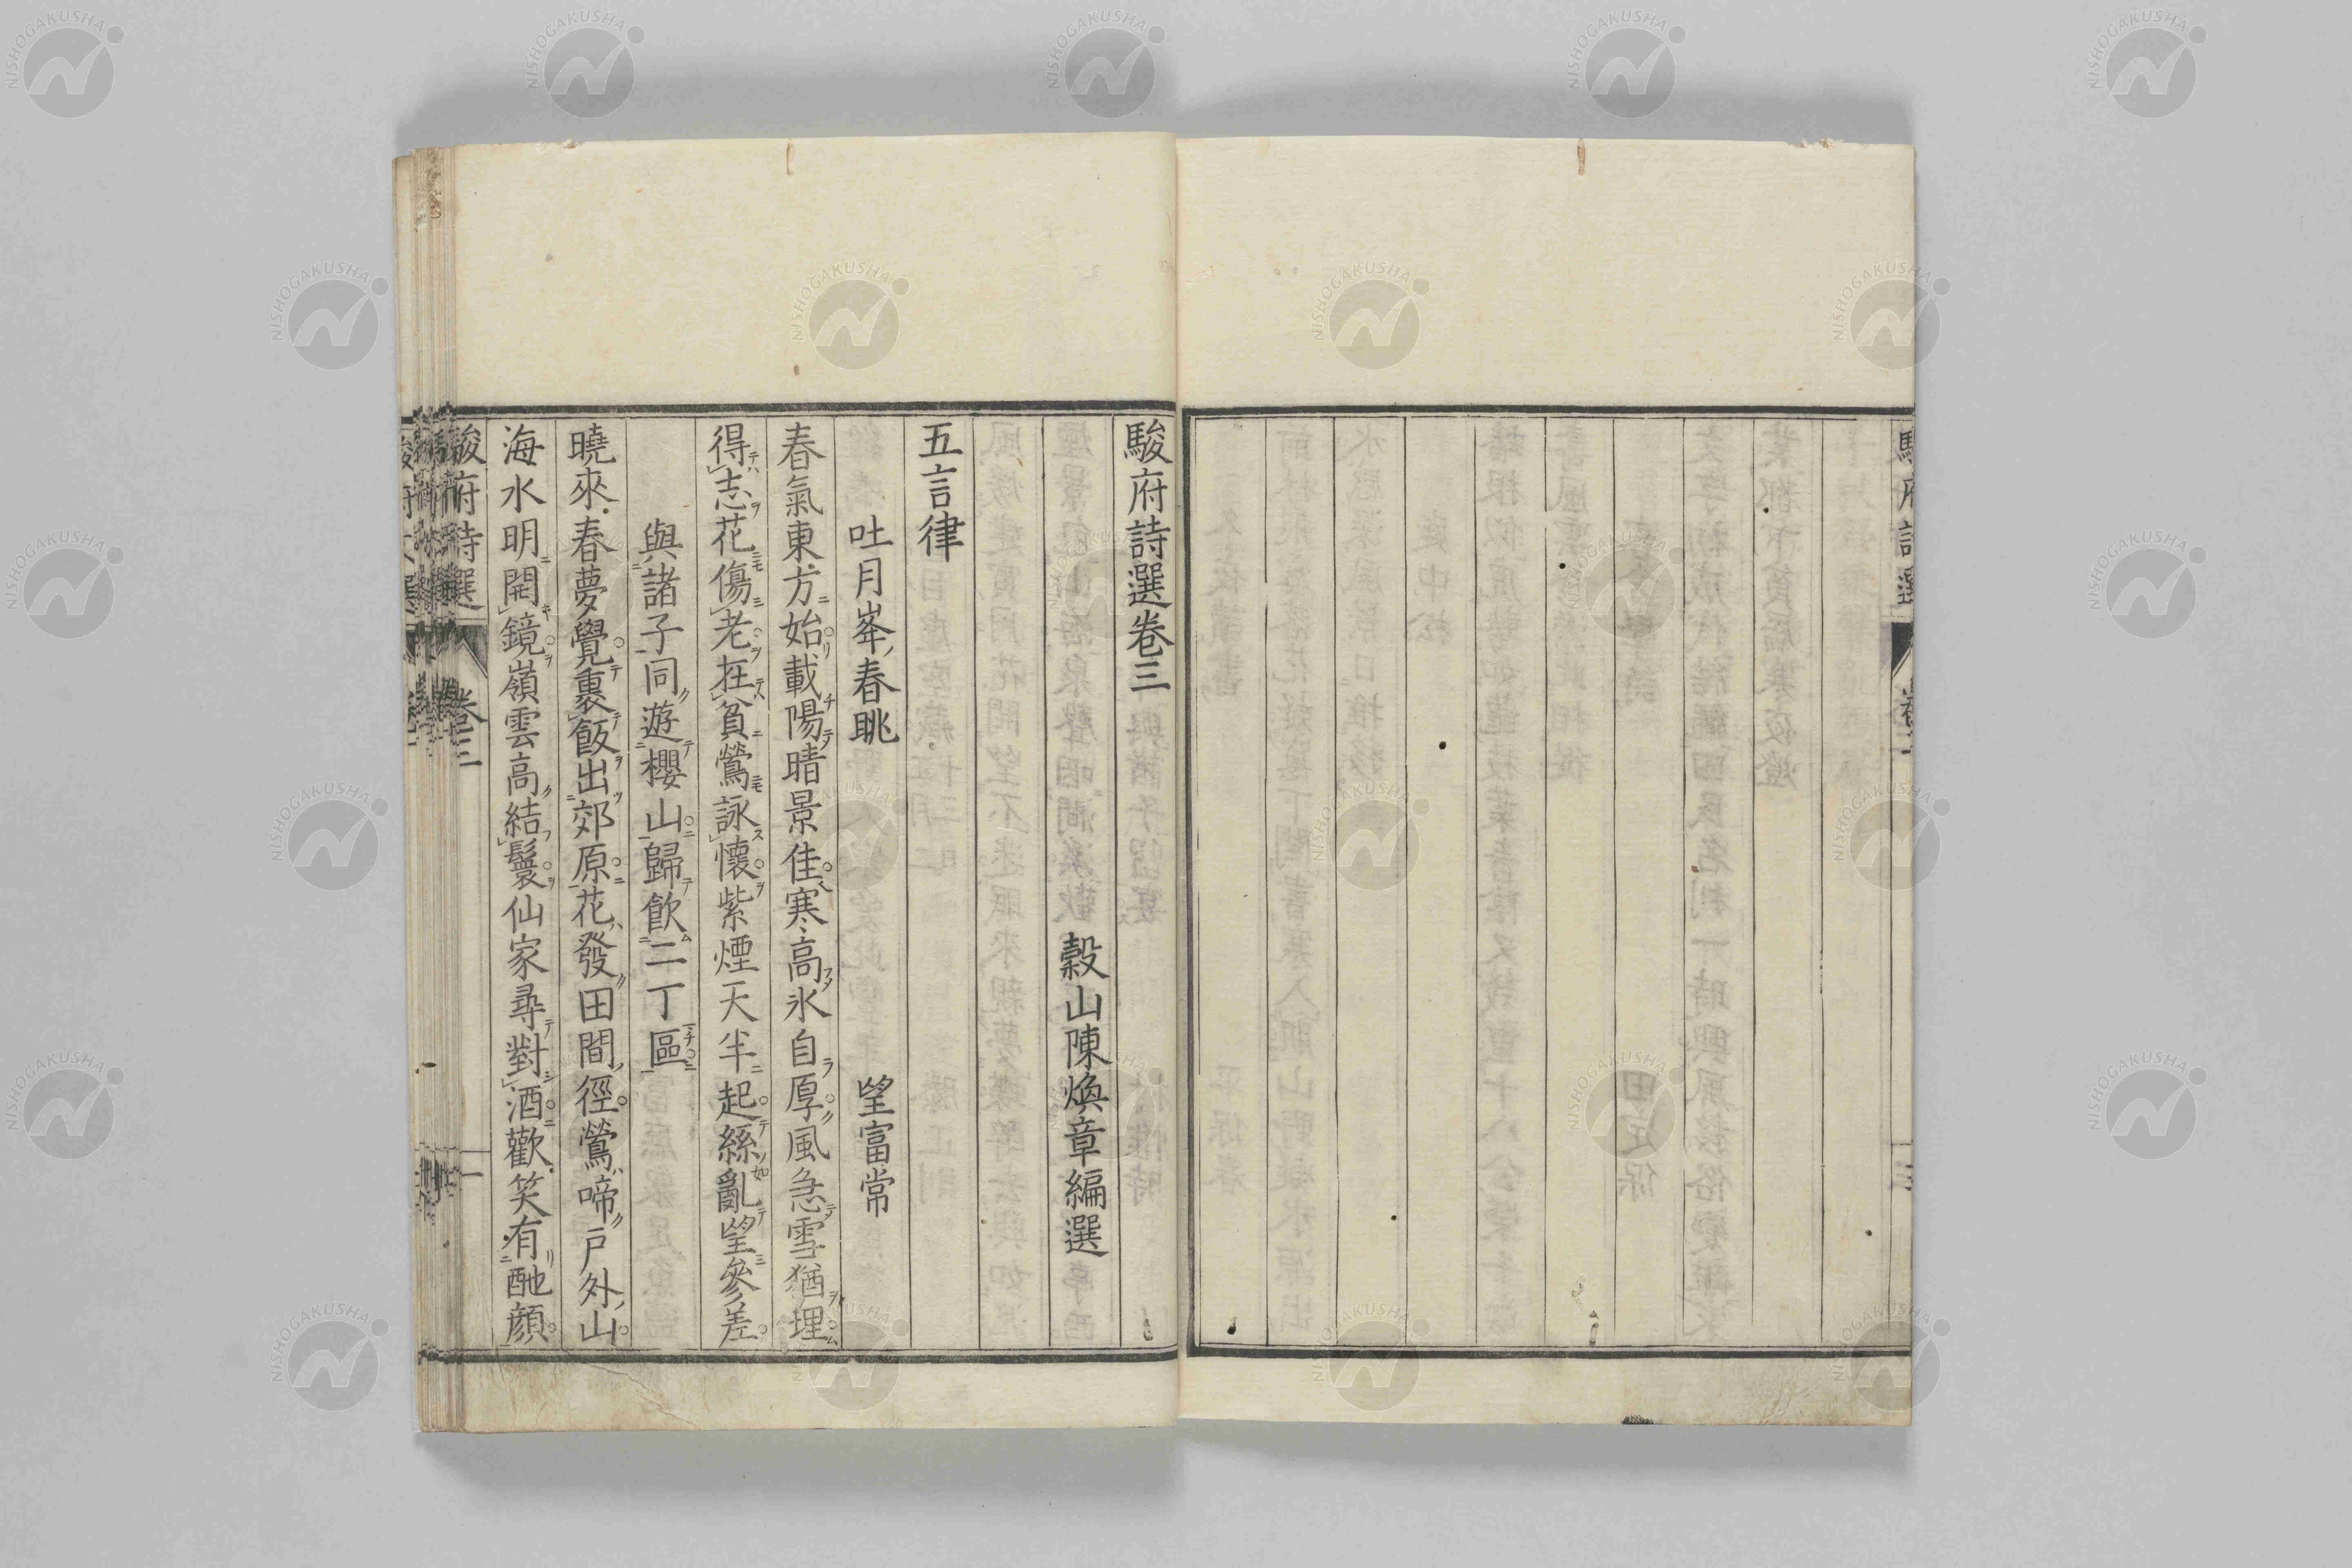 駿府詩選卷三
穀山陳煥章編選
五言律
吐月峯春眺 望富常
春氣東方始載陽晴景佳寒高氷自厚風急雪猶埋
得志花傷老在貧鶯詠懷紫煙天半起絲亂望參差
與諸子同遊櫻山歸飲二丁區
曉來春夢覺裹飯出郊原花發田間徑鶯啼戶外山
海水明開鏡嶺雲高結鬟仙家尋對酒歡笑有酏顔
駿府詩選 卷三 一